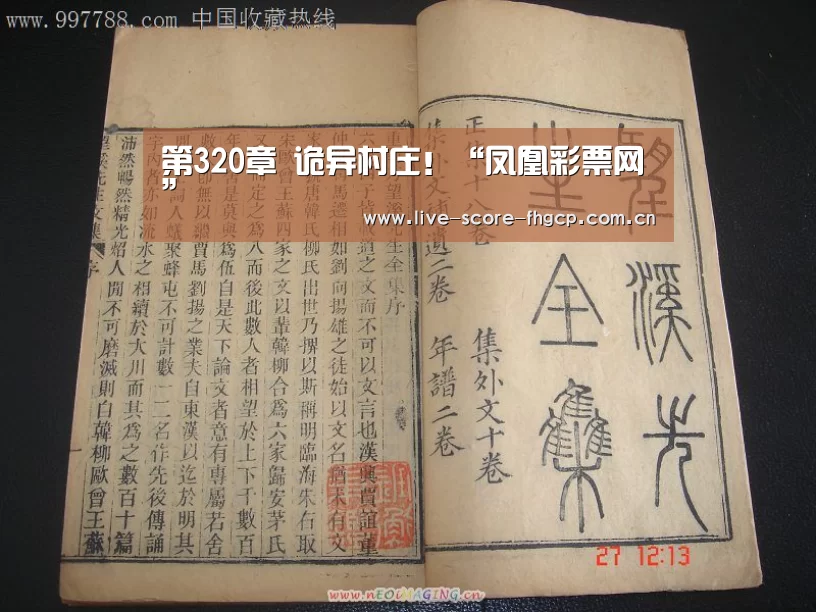 www.997788.com 中国收藏热线
第320章 诡异村庄！“凤凰彩票网
”
www.live-score-fhgcp.com.cn
望溪先
生全集
正集十八卷
集外文十卷
集外文補遺二卷
年譜二卷
望溪先生全集序
六
道之文而不可以文言也漢興賈誼董
仲
馬遷相如劉向揚雄之徒始以文名猶未有文
家
唐韓氏柳氏出世乃撰以斯稱明臨海朱右取
宋歐曾王蘇四家之文以輩韓柳合爲六家歸安茅氏
又
定之爲八而後此數人者相望於上下千數百
年
是莫與爲伍自是天下論文者意有專屬若舍
數
無以
賈馬劉揚之業夫自東漢以迄於明其
人蟻聚蜂屯不可計數一二名作先後傳誦
宇內者亦如流水之相續於大川而其爲之數百十篇
沛然暢然精光焰人閒不可磨滅則自韓柳歐曾王蘇
望溪先生文集
序
27 12:13
www.neoimaging.cn